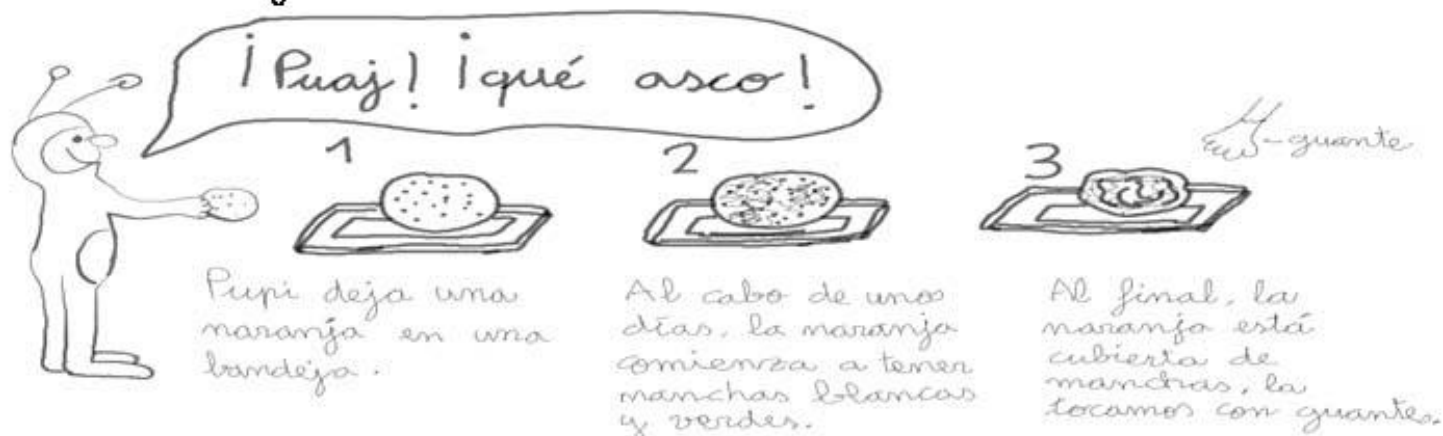 ¡Puaj! ¡qué asco!
1
2
3
guante
Pupi deja una
naranja en una
bandeja.
Al cabo de unos
días, la naranja
comienza a tener
manchas blancas
y verdes.
Al final, la
naranja está
cubierta de
manchas, la
tocamos con guantes.